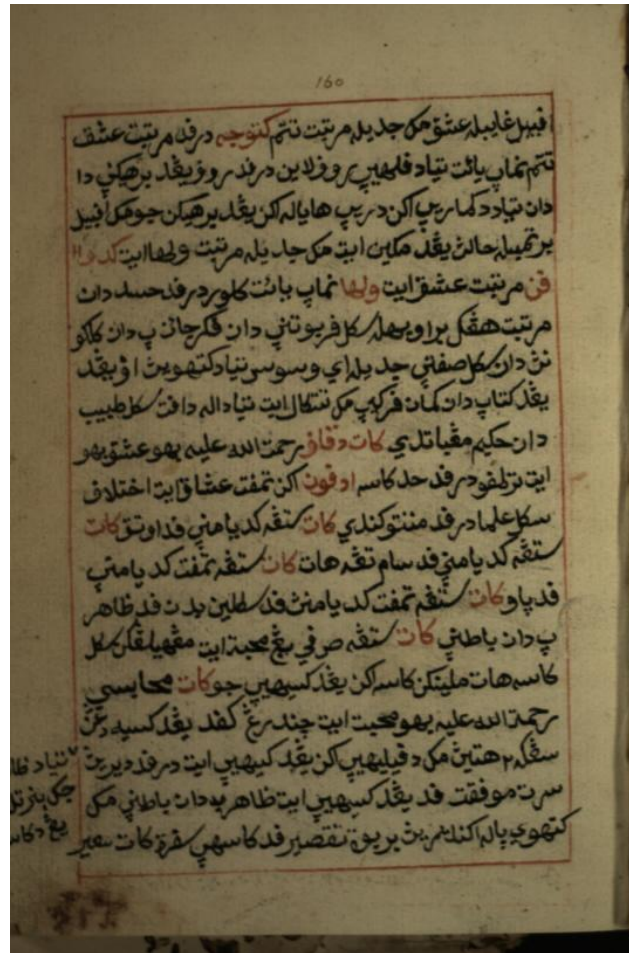 160
افبيل غايبله عشق مک جديله مرتبت تتم کتوجه درفد مرتبت عشق
تتم نماپ يائت تياد فلهيهن روف لاين درفد روف يڠد برهيکي دا
دان تياد د کماريپ اکن دريپ هاياله اکن يڠد برهيکن جو مک افبيل
برتمبله حالن يڠد مکين ايت مک جديله مرتبت ولها ايت کدوا
فن مرتبت عشق ايت ولها نماپ يائت کلور درفد حسد دان
مرتبت هڠکل براوبهله سکل فربوتني دان فکرجائن پ دان کلاکو
نن دان سکل صفتي جديله اي وسوس تياد کتهوين اف يڠد
يڠد کتاپ دان کمان فرکيپ مک تتکال ايت تياداله دافت سکل طبيب
دان حکيم مڠباتلدي کات دقاق رحمت الله عليه بهو عشق بهو
ايت ترلمفو درفد حد کاسه ادفون اکن تمفت عشاق ايت اختلاف
سکل علما درفد مننتوکندي کات ستڠه کدياماني فد اوتق کات
ستڠه کدياماني فد سام تڠه هات کات ستڠه تمفت کدياماني
فد ياو کات ستڠه تمفت کدياماني فد سکلين بدن فد ظاهر
پ دان باطنی کات ستڠه صرفي يڠ محبة ايت مڠهيلڠکن سکل
کاسه هات ملينکن کاسه اکن يڠد کسيهن جو کات محابسي
رحمة الله عليه بهو محبت ايت چندرڠ کفد يڠد کسيه دڠن
سڠکه٢ هتين مک دفيليهين اکن يڠد کسيهين ايت درفد ديرين
سرت موفقت فد يڠد کسيهين ايت ظاهر دان باطنی مک
کتهوي ياله اکندرين بربوة تقصير فد کاسهي سفرة کات سعير
تياد ظا
جک بازتل
يڠ دکاس